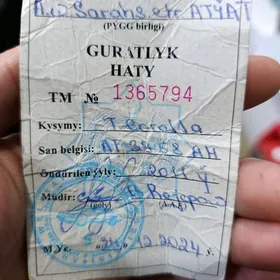 Sarahs etr. ATYAT
(PYGG birligi)
GURATLYK
HATY
TM № 1365794
Kysymy: T. Corolla
San belgisi: AT 3458 AH
Öndürilen ýyly: 2011 ý
Müdir:
(goly) (A.A.)
M.Ýe. "23" 12.2024 ý.